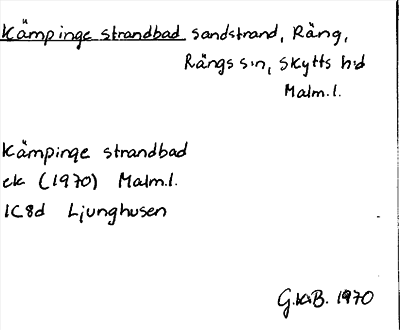 Kämpinge strandbad sandstrand, Räng,
Rängs sn, Skytts hd
Malm.l.
Kämpinge strandbad
ek (1970) Malm.l.
1C8d Ljunghusen
G.KsB. 1970